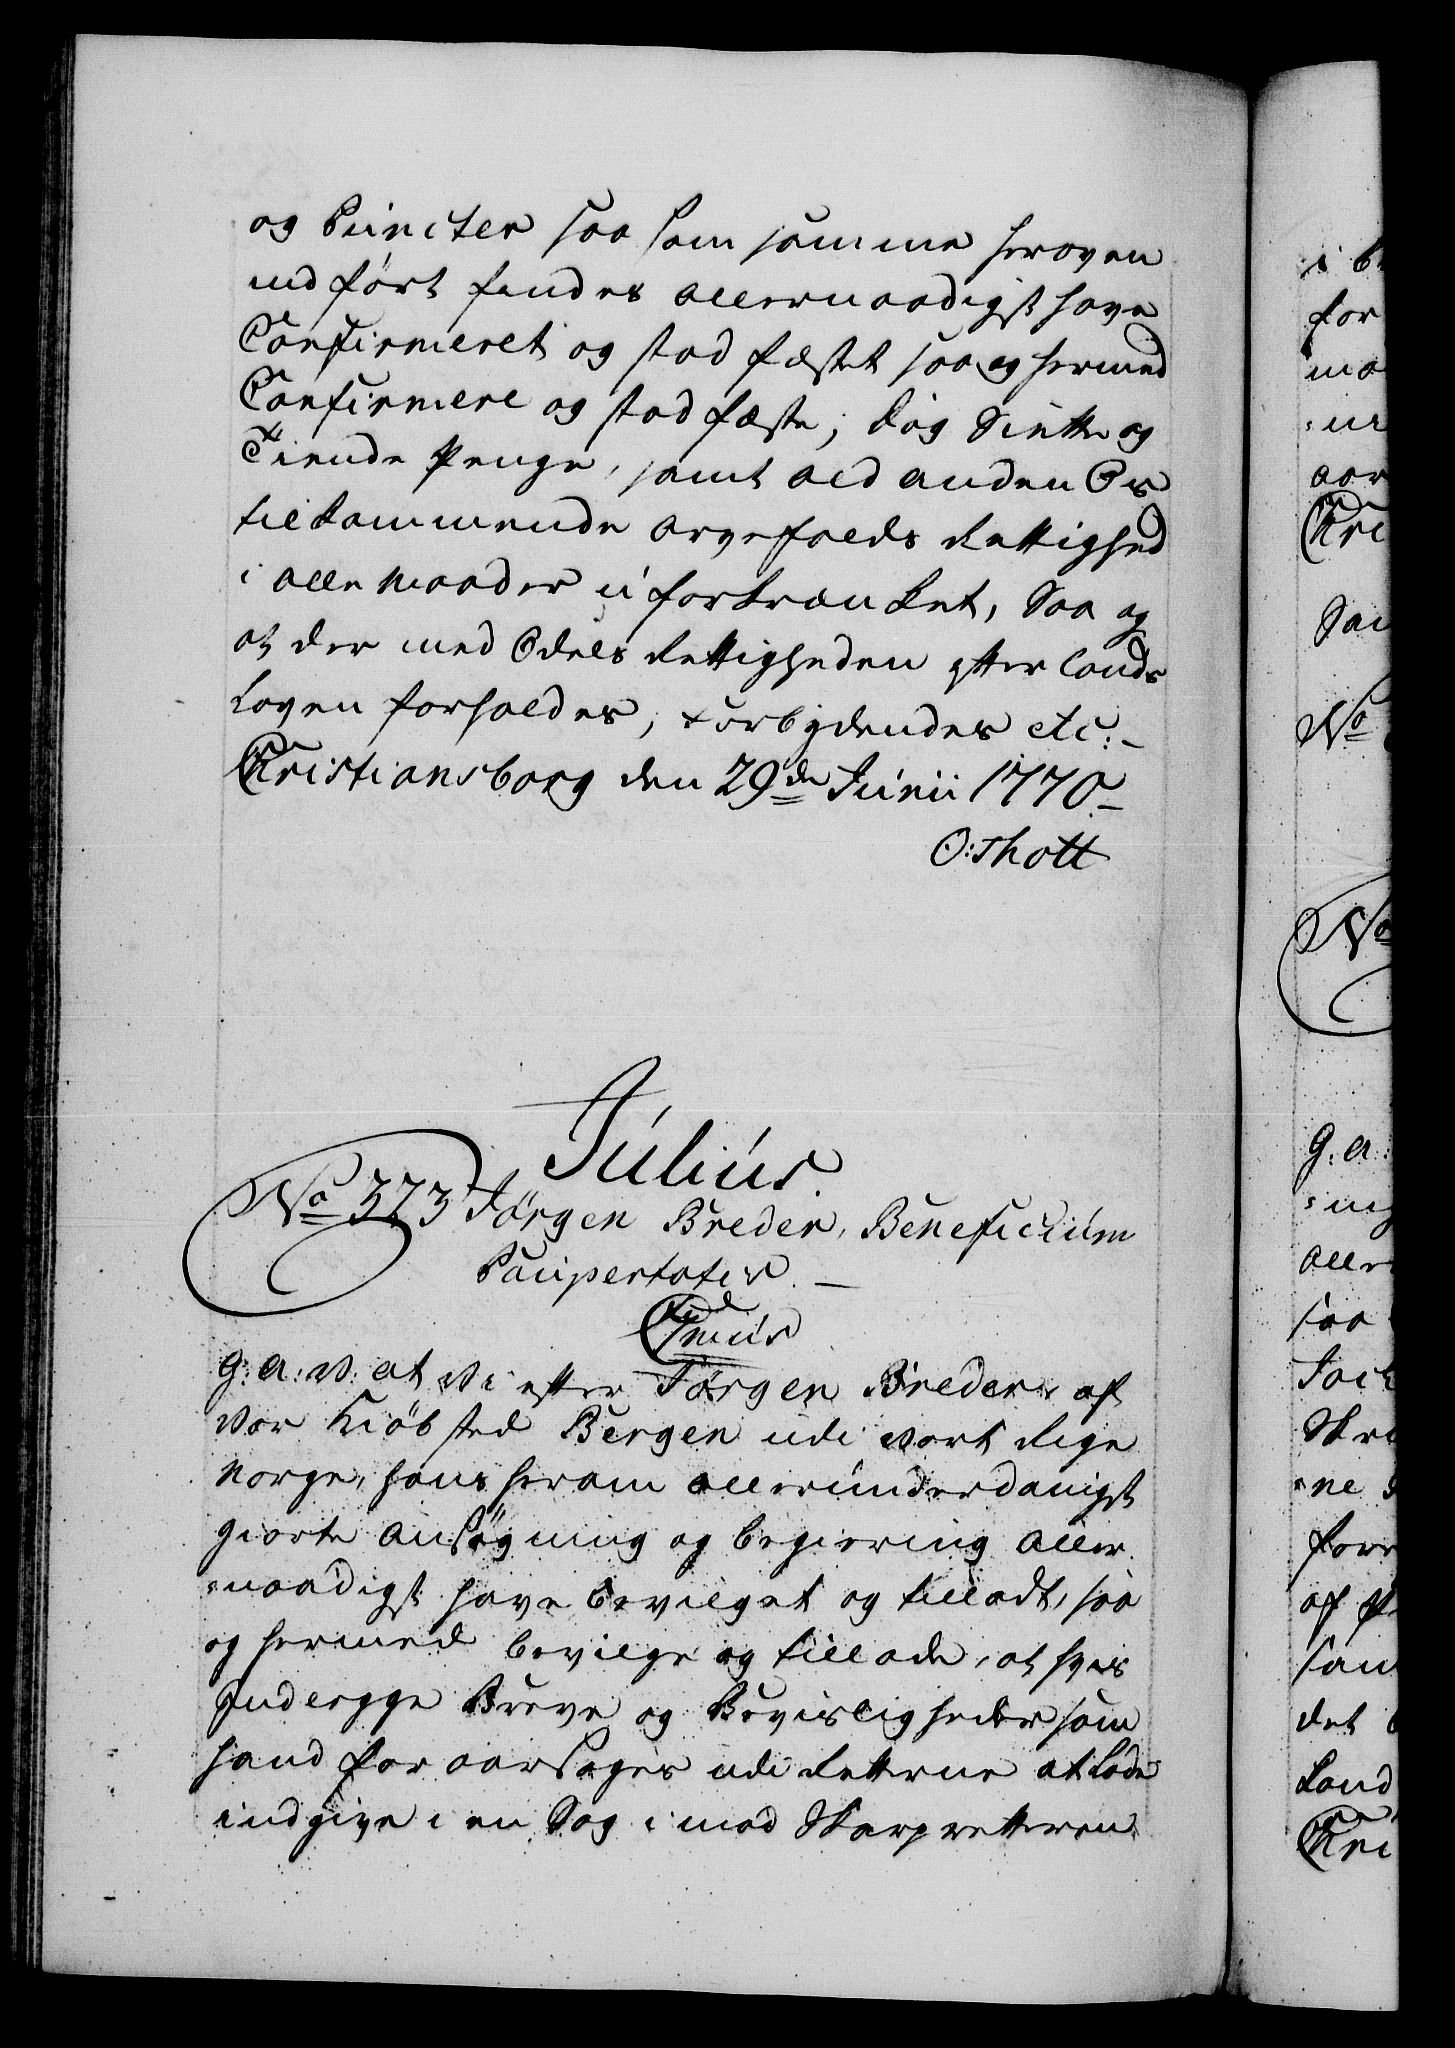 og Puncter saa som samme heroven
indført findes allernaadigst have
Confirmeret og stadfæstet saa og hermed
Confirmere og stadfæste; dog Siette og
Tiende Penge, samt ald anden Os
tilkommende arvefalds Rettighed
i alle Maader ufortrænket, Saa og
at der med Odels Rettigheden efter Lands
Loven forholdes, Forbydendes etc:
Christiansborg den 29de Junii 1770.
O: Thott
Julius.
No 373 Jørgen Breder, Beneficium
Paupertatis.
G: A: V: at Vi efter Jørgen Breder af
Vor Kiöbsted Bergen udi Vort Rige
Norge, hans herom allerunderdanigst
giorte Ansøgning og begiering aller
naadigst have bevilget og tilladt, saa
og hermed bevilge og tillade, at hvis
Indlegge Breve og Beviisligheder som
hand foraarsages udi Retterne at lade
indgive i en Sag imod Skarpretteren